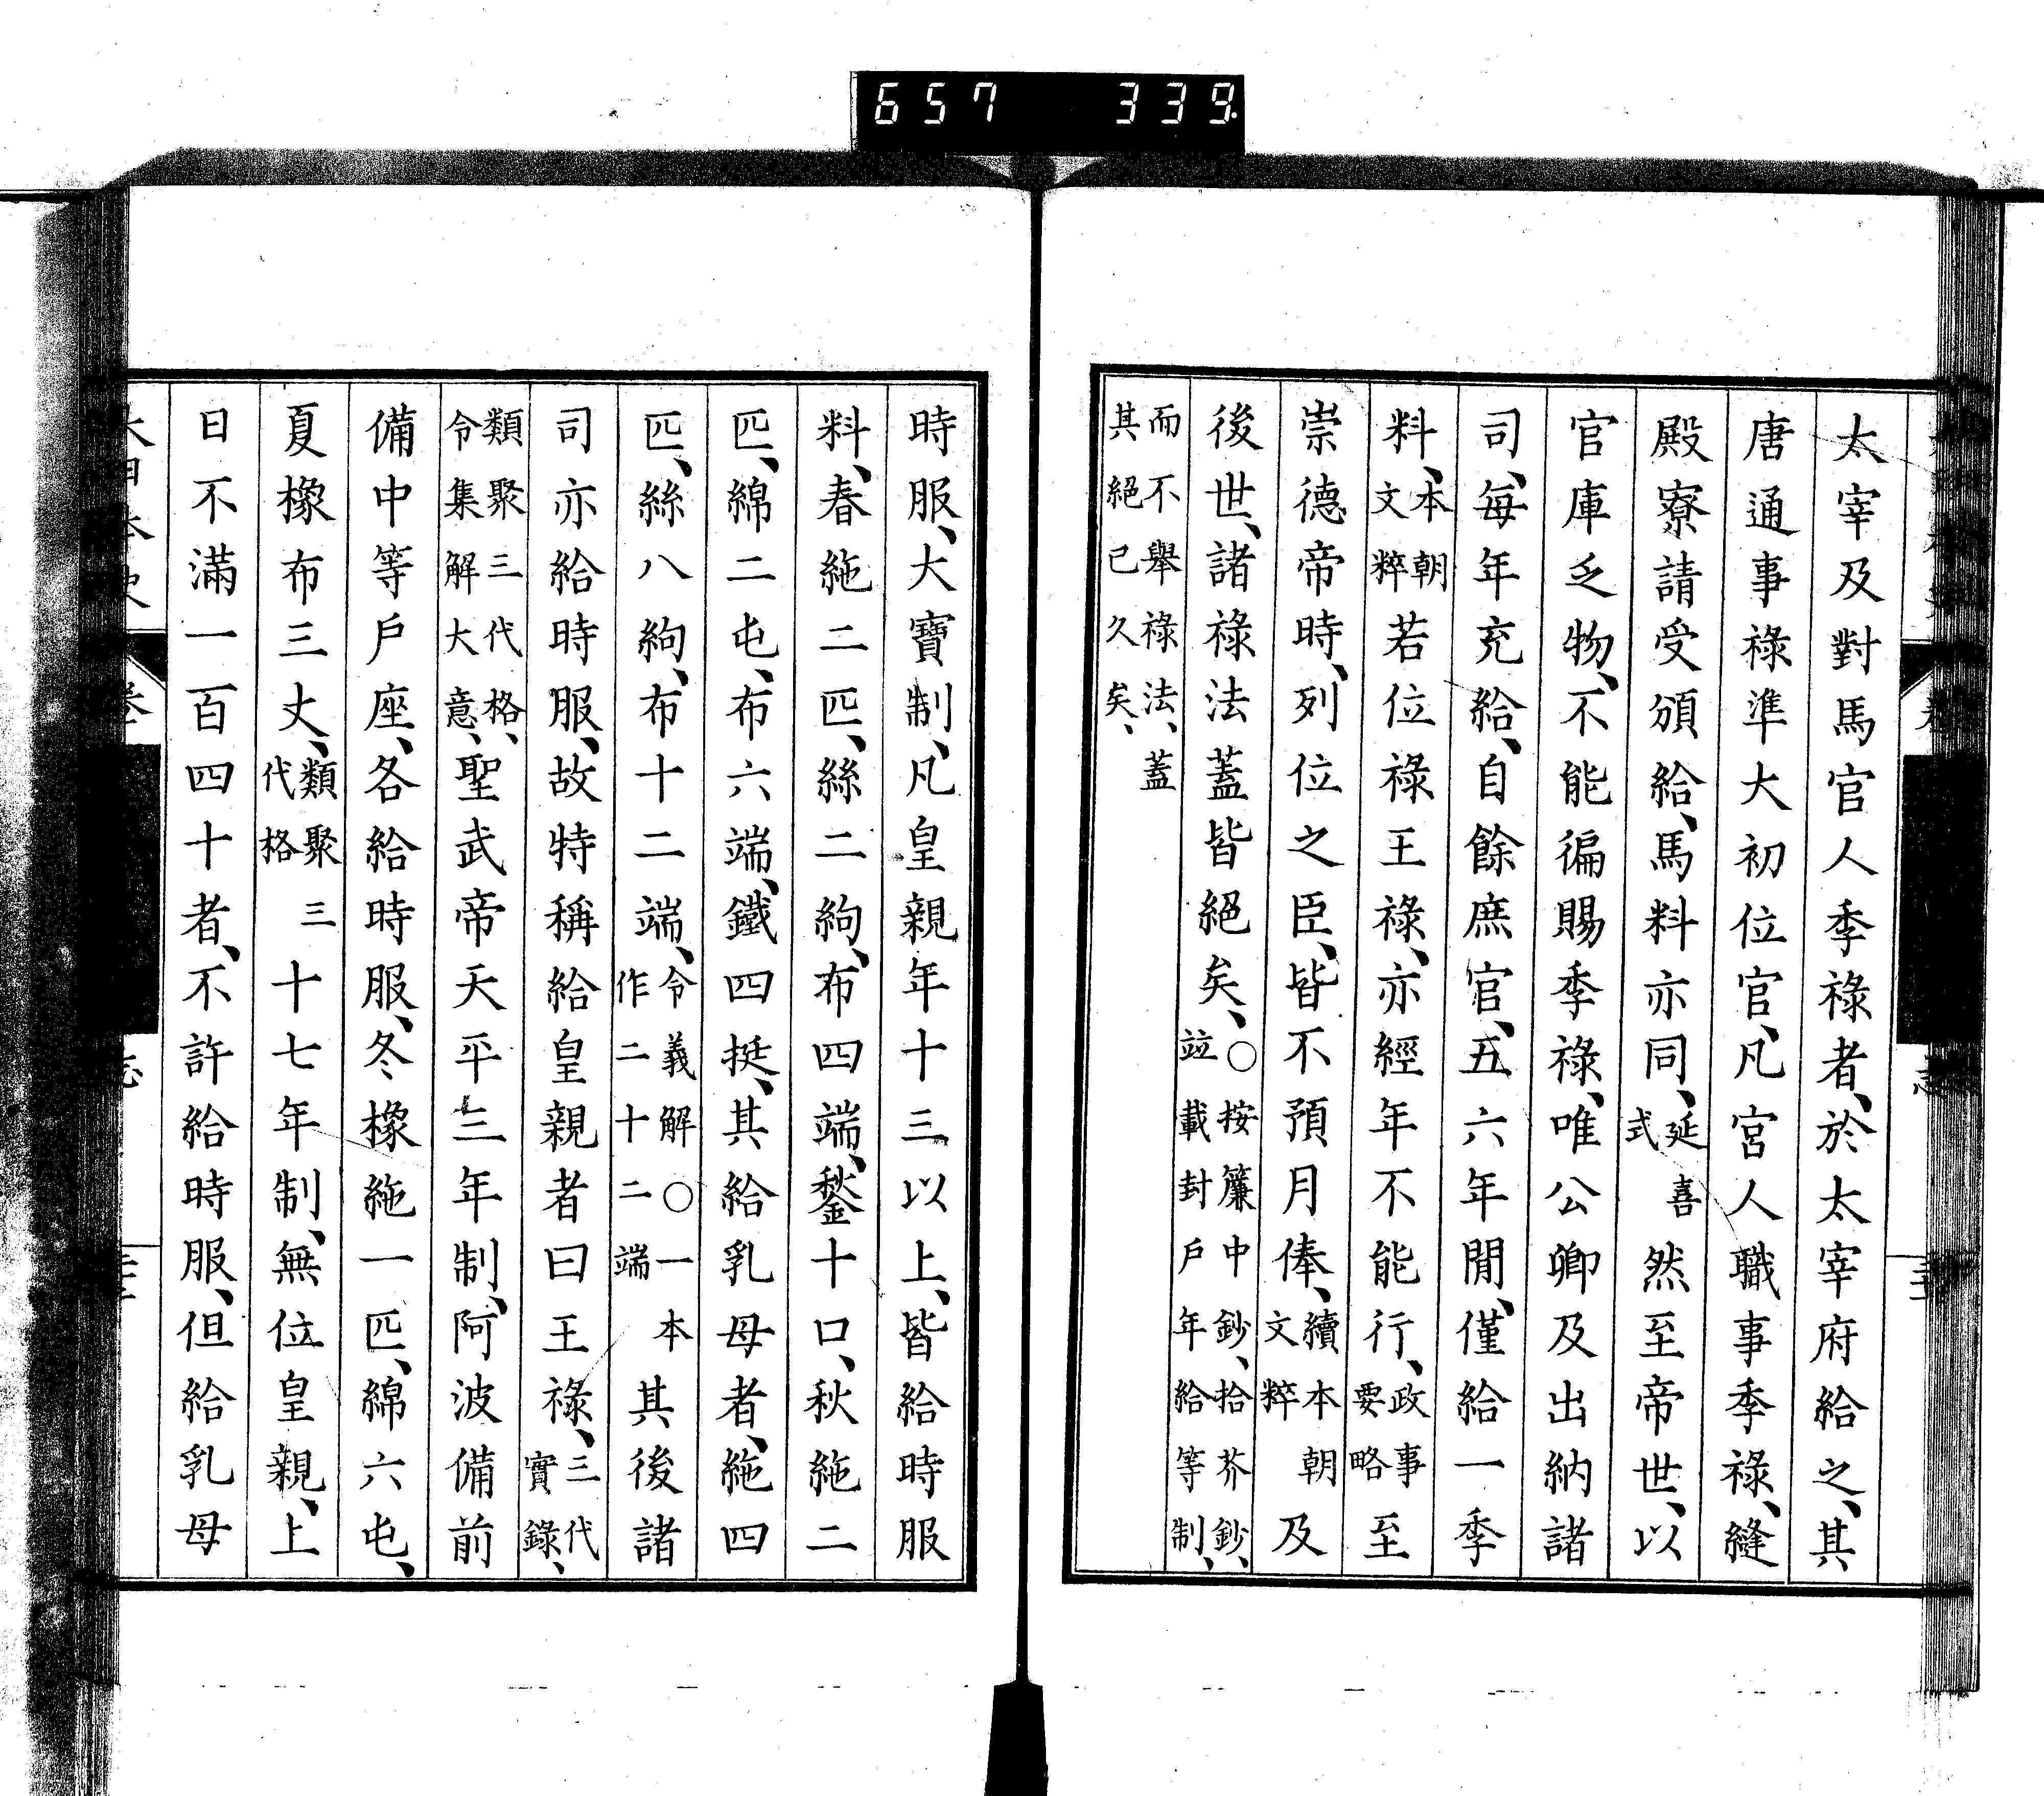 657 339
太宰及對馬官人季祿者、於太宰府給之、其
唐通事祿準大初位官、凡宮人職事季祿、縫
殿寮請受頒給、馬料亦同、延喜式然至帝世、以
官庫乏物、不能徧賜季祿、唯公卿及出納諸
司、每年充給、自餘庶官、五六年閒、僅給一季
料、本朝文粹若位祿王祿、亦經年不能行、政事要略至
崇德帝時、列位之臣、皆不預月俸、續本朝文粹及
後世、諸祿法蓋皆絕矣、○按簾中鈔、拾芥鈔、竝載封戶年給等制、
而不舉祿法、蓋其絕已久矣、
時服、大寶制、凡皇親年十三以上、皆給時服
料、春絁二匹、絲二絇、布四端、鍫十口、秋絁二
匹、綿二屯、布六端、鐵四挺、其給乳母者、絁四
匹、絲八絇、布十二端、令義解○一本作二十二端其後諸
司亦給時服、故特稱給皇親者曰王祿、三代實錄、
類聚三代格、令集解大意、聖武帝天平三年制、阿波備前
備中等戶座、各給時服、冬橡絁一匹、綿六屯、
夏橡布三丈、類聚三代格十七年制、無位皇親、上
日不滿一百四十者、不許給時服、但給乳母
大日本史